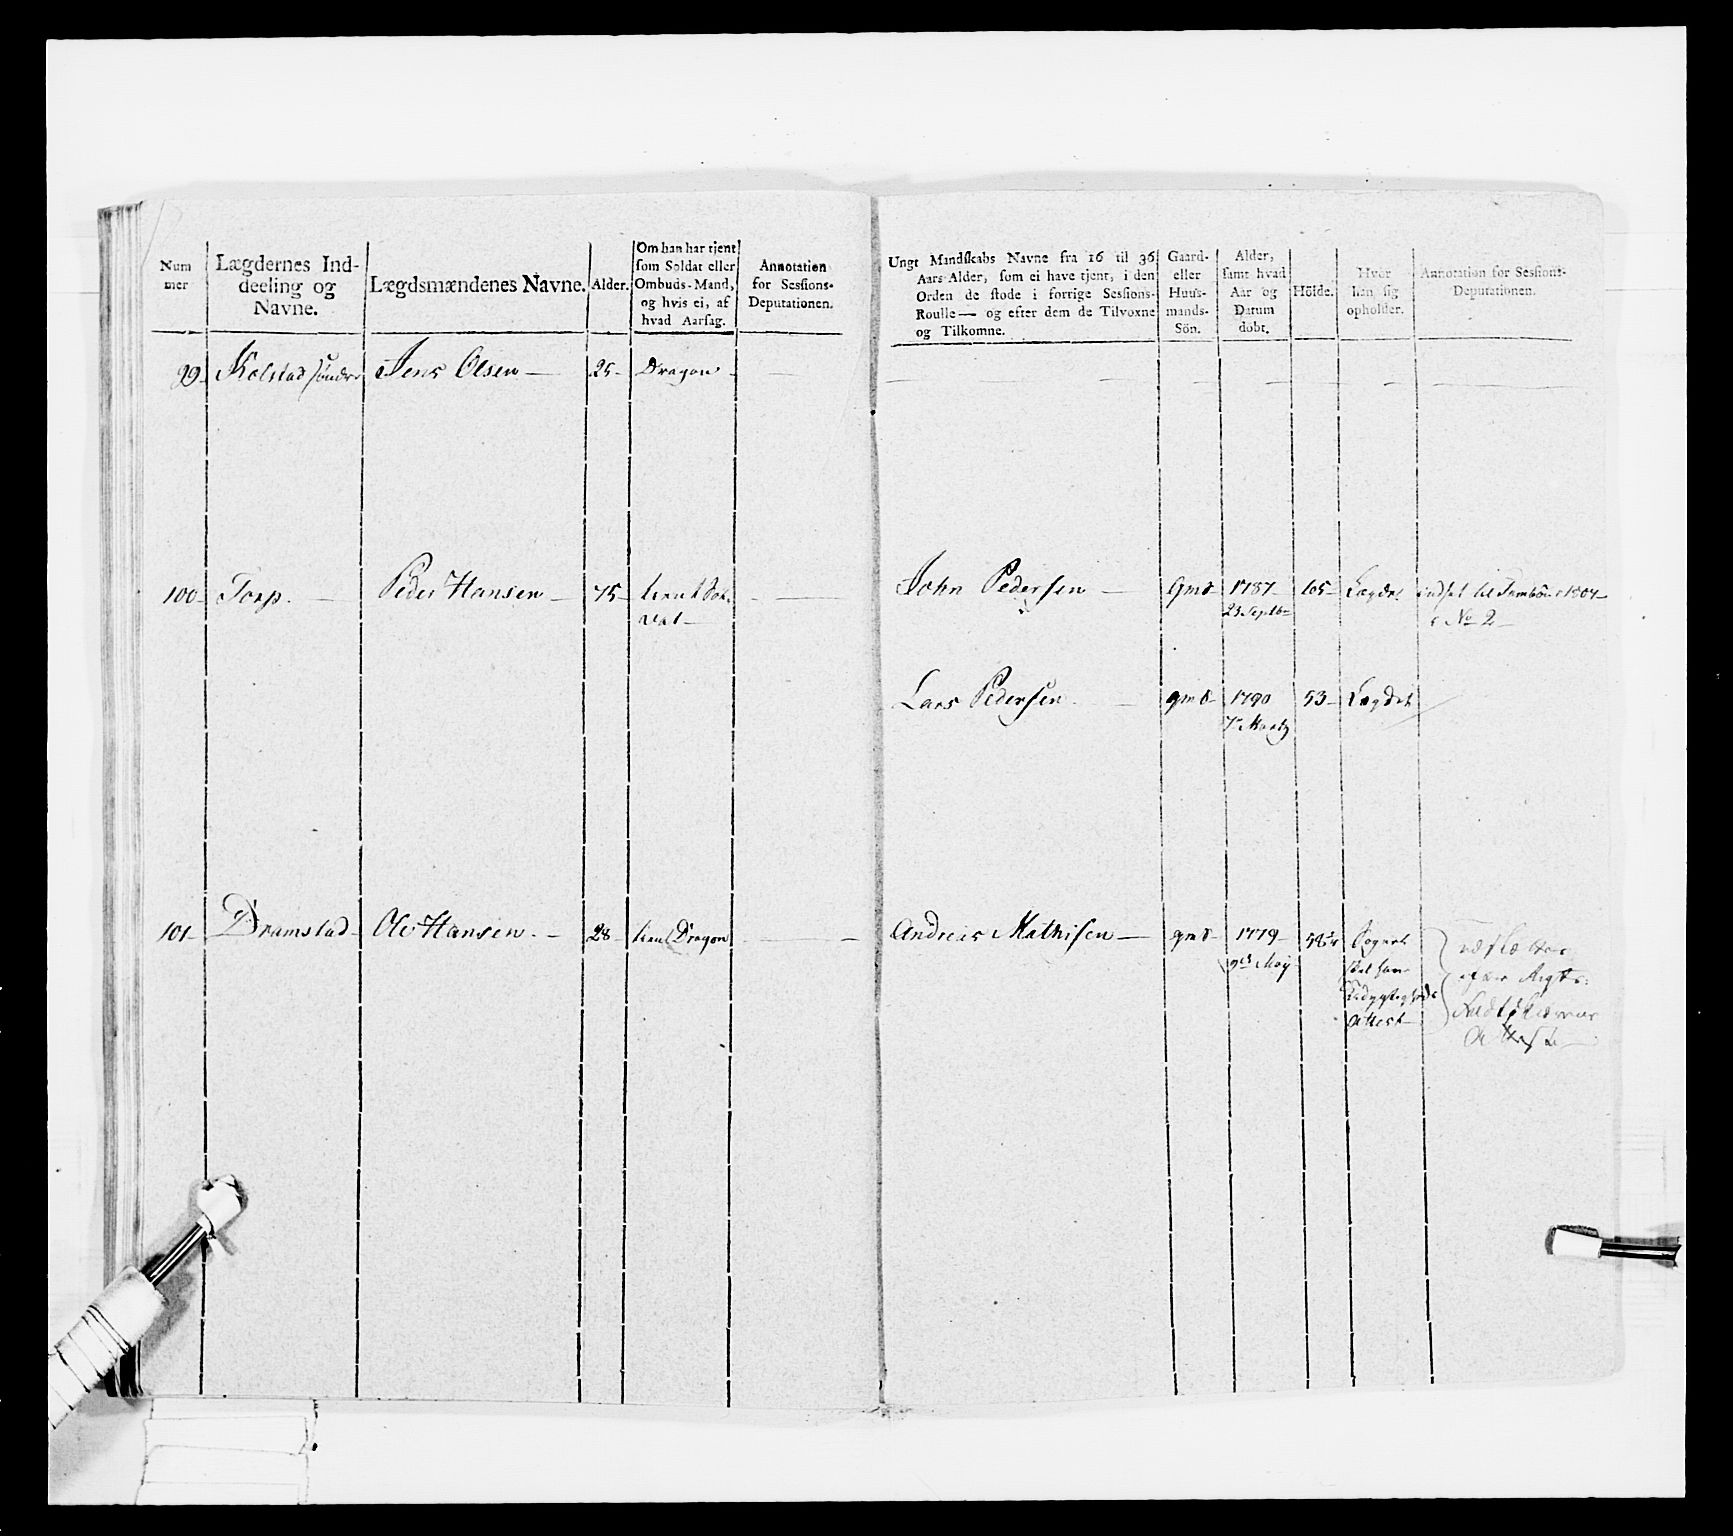 Num
mer
Lægdernes Ind-
deeling og
Navne.
Lægdsmændenes Navne.
Alder.
Om han har tjent
som Soldat eller
Ombuds-Mand,
og hvis ei, af
hvad Aarsag.
Annotation
for Sessions-
Deputationen.
Ungt Mandskabs Navne fra 16 til 36
Aars Alder, som ei have tjent, i den
Orden de stode i forrige Sessions-
Roulle — og efter dem de Tilvoxne
og Tilkomne.
Gaard-
eller
Huus-
mands-
Sön.
Alder,
samt hvad
Aar og
Datum
döbt.
Höide.
Hvor
han sig
opholder.
Annotation for Sessions-
Deputationen.
99 Kolstad söndre Jens Olsen — 25 Dragon
100 Torp. Peder Hansen 75 John Pedersen — gmS 1787 Lægdet
23 Septbr No 2
Lars Pedersen gmS 1790 53 Lægdet
7 Martz
101 Dramstad Ole Hansen 28 Dragon Andreas Mathisen — gmS 1779
9de May
Attest